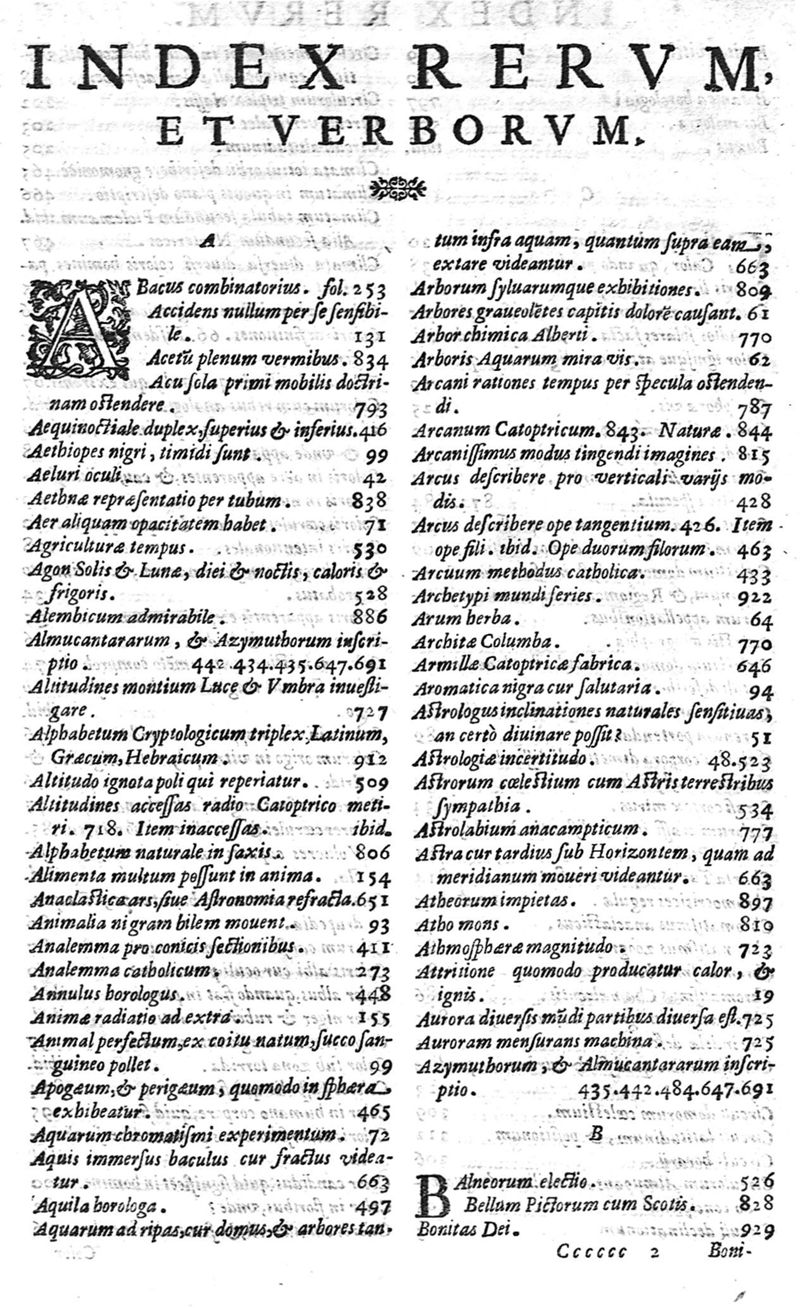 INDEX RERVM,
ET VERBORVM.
A
ABacus combinatorius. fol. 253
Accidens nullum per se sensibi-
le. 131
Acetū plenum vermibus. 834
Acu sola primi mobilis doctri-
nam ostendere. 793
Aequinoctiale duplex, superius & inferius. 416
Aethiopes nigri, timidi sunt. 99
Aeluri oculi. 42
Aethnæ repræsentatio per tubum. 838
Aer aliquam opacitatem habet. 71
Agriculturæ tempus. 530
Agon Solis & Lunæ, diei & noctis, caloris &
frigoris. 528
Alembicum admirabile. 886
Almucantararum, & Azymuthorum inscri-
ptio. 442.434.435.647.691
Altitudines montium Luce & Vmbra inuesti-
gare. 727
Alphabetum Cryptologicum triplex, Latinum,
Græcum, Hebraicum. 912
Altitudo ignota poli qui reperiatur. 509
Altitudines accessas radio Catoptrico meti-
ri. 718. Item inaccessas. ibid.
Alphabetum naturale in saxis. 806
Alimenta multum possunt in anima. 154
Anaclastica ars, siue Astronomia refracta. 651
Animalia nigram bilem mouent. 93
Analemma pro conicis sectionibus. 411
Analemma catholicum. 273
Annulus horologus. 448
Animæ radiatio ad extra. 155
Animal perfectum, ex coitu natum, succo san-
guineo pollet. 99
Apogæum, & perigæum, quomodo in sphæra
exhibeatur. 465
Aquarum chromatismi experimentum. 72
Aquis immersus baculus cur fractus videa-
tur. 663
Aquila horologa. 497
Aquarum ad ripas, cur domus, & arbores tan-
tum infra aquam, quantum supra eam,
extare videantur. 663
Arborum syluarumque exhibitiones. 809
Arbores graueolētes capitis dolorē causant. 61
Arbor chimica Alberti. 770
Arboris Aquarum mira vis. 62
Arcani rationes tempus per specula ostenden-
di. 787
Arcanum Catoptricum. 843. Naturæ. 844
Arcanissimus modus tingendi imagines. 815
Arcus describere pro verticali varijs mo-
dis. 428
Arcus describere ope tangentium. 426. Item
ope fili. ibid. Ope duorum filorum. 463
Arcuum methodus catholica. 433
Archetypi mundi series. 922
Arum herba. 64
Architæ Columba. 770
Armillæ Catoptricæ fabrica. 646
Aromatica nigra cur salutaria. 94
Astrologus inclinationes naturales sensitiuas,
an certò diuinare possit? 51
Astrologiæ incertitudo. 48.523
Astrorum cœlestium cum Astris terrestribus
sympathia. 534
Astrolabium anacampticum. 777
Astra cur tardius sub Horizontem, quam ad
meridianum moueri videantur. 663
Atheorum impietas. 897
Atho mons. 810
Athmosphæræ magnitudo. 723
Attritione quomodo producatur calor, &
ignis. 19
Aurora diuersis mūdi partibus diuersa est. 725
Auroram mensurans machina. 725
Azymuthorum, & Almucantararum inscri-
ptio. 435.442.484.647.691
B
BAlneorum electio. 526
Bellum Pictorum cum Scotis. 828
Bonitas Dei. 929
Cccccc 2 Boni-